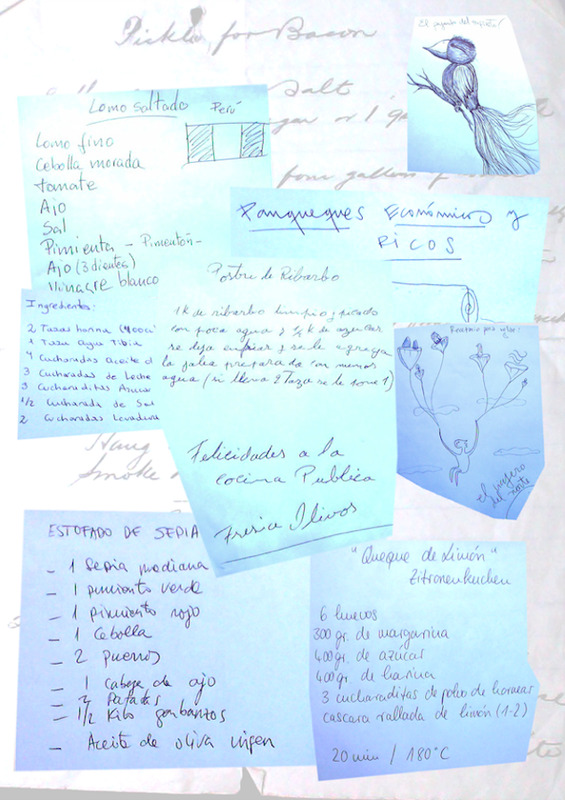 Pickle for Bacon
Salt
or 1
four gallon
Hang
Smoke
El pajaro del
Lomo saltado Perú
Lomo fino
Cebolla morada
tomate
Ajo
Sal
Pimienta - Pimentón -
Ajo (3 dientes)
Vinagre blanco
Panqueques Económicos y
Ricos
Postre de Ribarbo
1 k de ribarbo limpio y picado
con poca agua y 3/4 k de azucar
se deja enfriar y se le agrega
la jalea preparada con menos
agua (si lleva 2 Taza se le pone 1)
Felicidades a la
cocina Publica
Fresia Olivos
Ingredientes:
2 Tazas harina
1 Taza agua Tibia
4 Cucharadas Aceite d
3 Cucharadas de Leche
3 Cucharaditas Azucar
1/2 Cucharada de Sal
2 Cucharadas Levadura
el pajaro
del norte
ESTOFADO DE SEPIA
- 1 Sepia mediana
- 1 pimiento verde
- 1 pimiento rojo
- 1 Cebolla
- 2 puerros
- 1 cabeza de ajo
- 2 Patatas
- 1/2 Kilo garbanzos
- Aceite de oliva virgen
"Queque de Limón"
Zitronenkuchen
6 huevos
300 gr. de margarina
400 gr. de azúcar
400 gr. de harina
3 cucharaditas de polvo de hornear
cascara rallada de limón (1-2)
20 min / 180°C